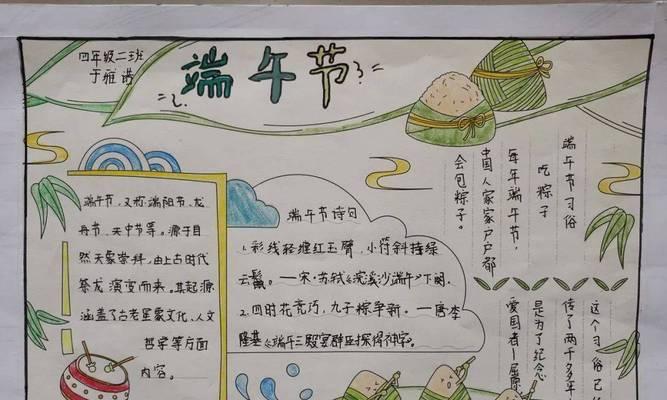 四年级二班
于雅诺
端午节
端午节，又称端阳节、龙
舟节、天中节等。源于自
然天象崇拜，由上古时代
祭龙演变而来。其起源
涵盖了古老星象文化、人文
哲学等方面
内容。
端午节诗句
1.彩线轻缠红玉臂，小符斜挂绿
云鬟。—宋·苏轼《浣溪沙端午》下阕
2.四时花竞巧，九子粽争新。—唐李
隆基《端午三殿宴群臣探得神字》
端午节习俗
吃粽子
每年端午节，
中国人家家户户都
会包粽子。
这个习俗已
传了两千多年
是为了纪念
爱国者—屈原